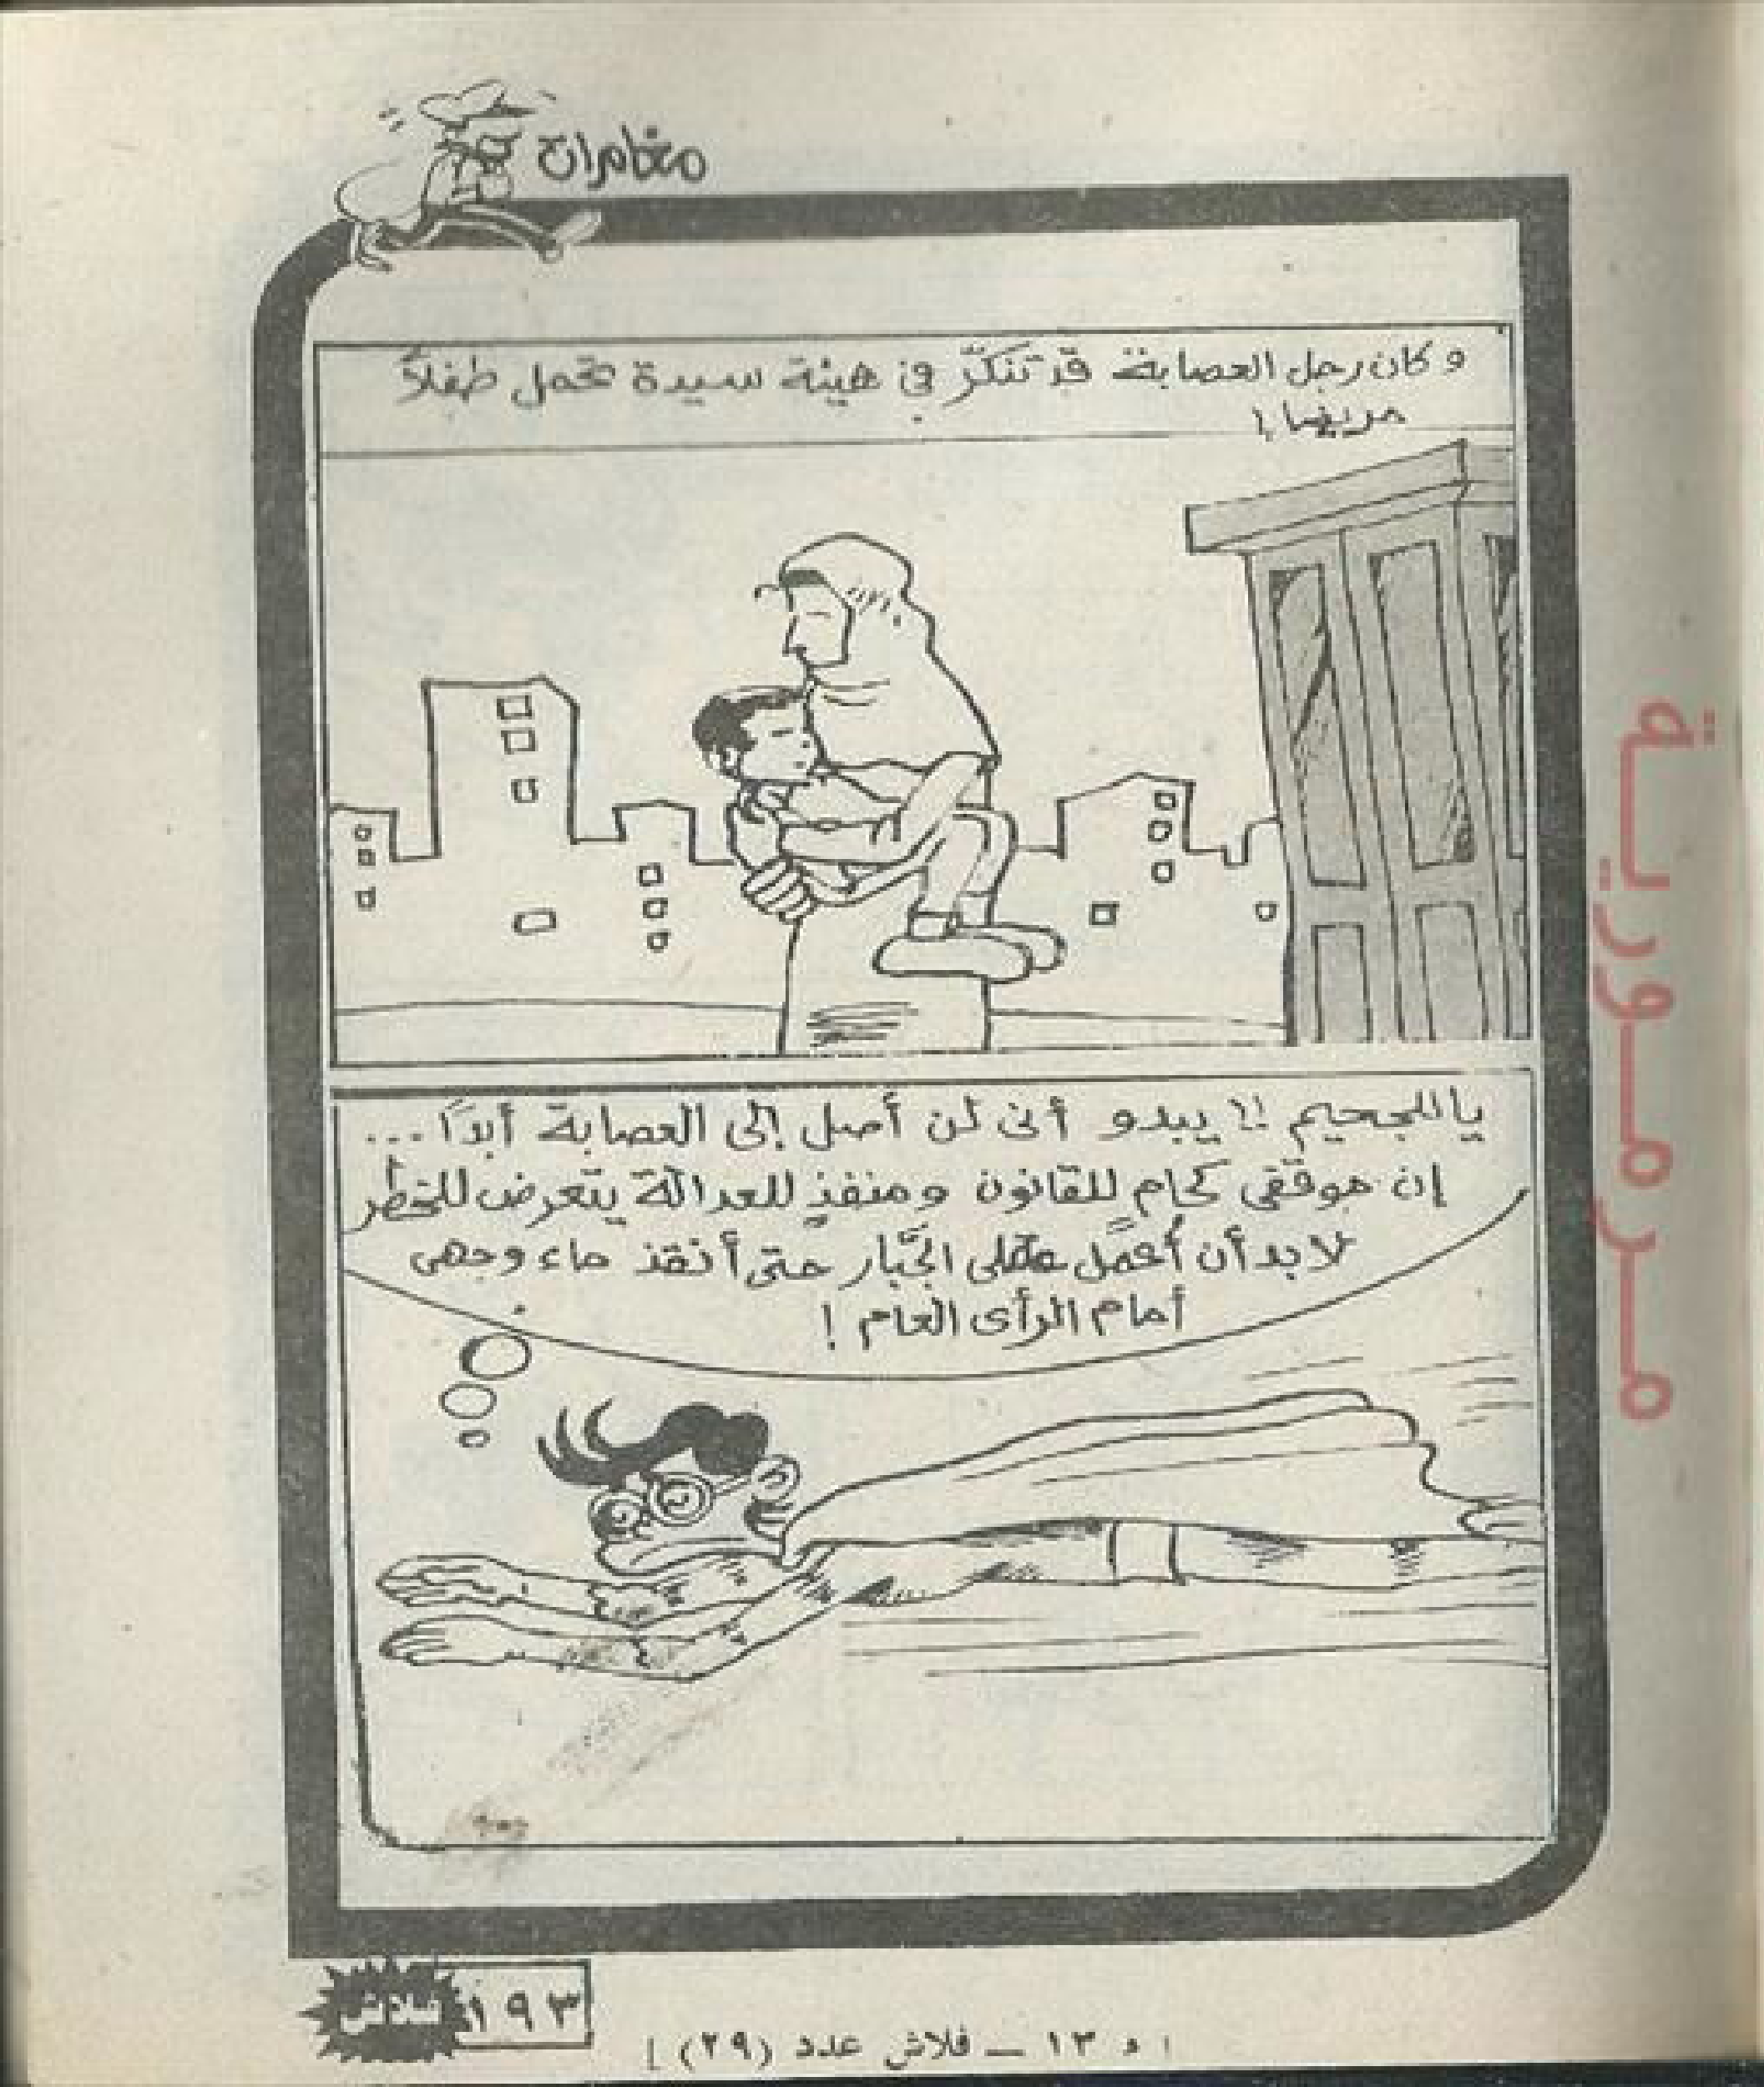 مغامرات
و كان رجل العصابة قد تنكّر في هيئة سيدة تحمل طفلاً
مريضا !
ياللجحيم !! يبدو أنى لن أصل إلى العصابة أبداً ...
إن موقفى كحامٍ للقانون ومنفذٍ للعدالة يتعرض للخطر
لابد أن أُعمل عقلى الجبَّار حتى أنقذ ماء وجهى
أمام الرأى العام !
مرمورية
فلاش ١٩٣
[ م ١٣ — فلاش عدد (٢٩) ]